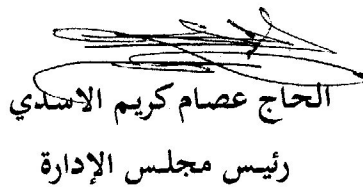 الحاج عصام كريم الاسدي
رئيس مجلس الإدارة